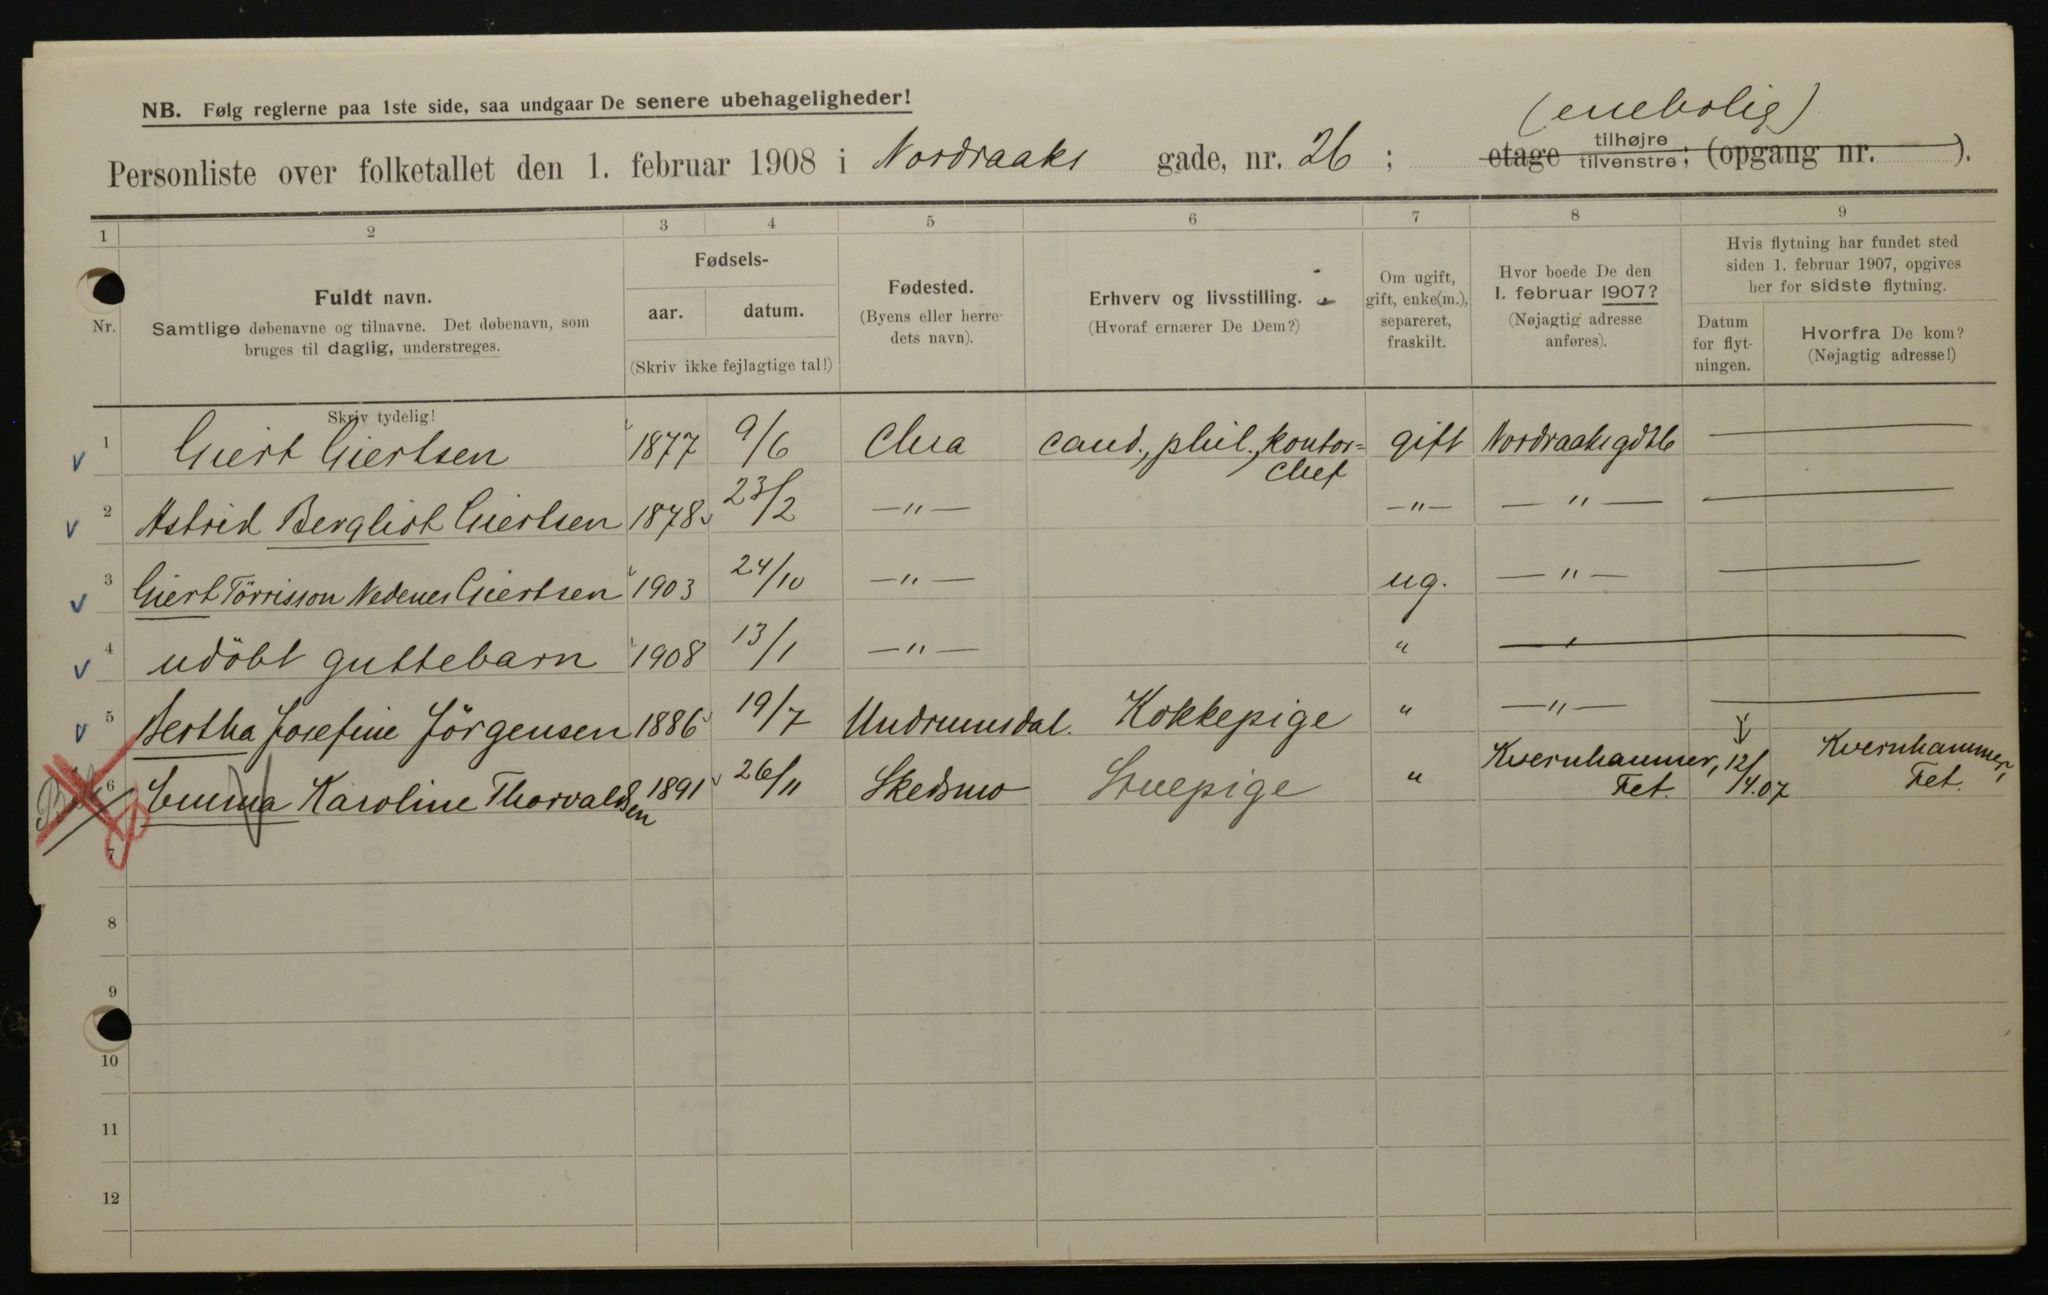 NB. Følg reglerne paa 1ste side, saa undgaar De senere ubehageligheder!
(enebolig)
Personliste over folketallet den 1. februar 1908 i Nordraaks gade, nr. 26 ; etage tilhøjre tilvenstre; (opgang nr. ).
1 2 3 4 5 6 7 8 9
Nr.
Fuldt navn.
Samtlige døbenavne og tilnavne. Det døbenavn, som
bruges til daglig, understreges.
Skriv tydelig!
Fødsels-
aar. datum.
(Skriv ikke fejlagtige tal!)
Fødested.
(Byens eller herre-
dets navn).
Erhverv og livsstilling.
(Hvoraf ernærer De Dem?)
Om ugift,
gift, enke(m.),
separeret,
fraskilt.
Hvor boede De den
1. februar 1907?
(Nøjagtig adresse
anføres).
Hvis flytning har fundet sted
siden 1. februar 1907, opgives
her for sidste flytning.
Datum
for flyt-
ningen.
Hvorfra De kom?
(Nøjagtig adresse!)
1 Giert Giertsen 1877 9/6 Chra cand. phil., kontor- gift Nordraaks gd 26
chef
2 Astrid Bergliot Giertsen 1878 23/2 —"— —"— —"—
3 Giert Törrisson Nedenes Giertsen 1903 24/10 —"— ug. —"—
4 udöbt guttebarn 1908 13/1 —"— "
5 Bertha Josefine Jörgensen 1886 19/7 Undrumsdal. Kokkepige " —"—
6 Emma Karoline Thorvaldsen 1891 26/11 Skedsmo Stuepige " Kvernhammer, Fet. 12/14.07 Kvernhammer, Fet.
7
8
9
10
11
12